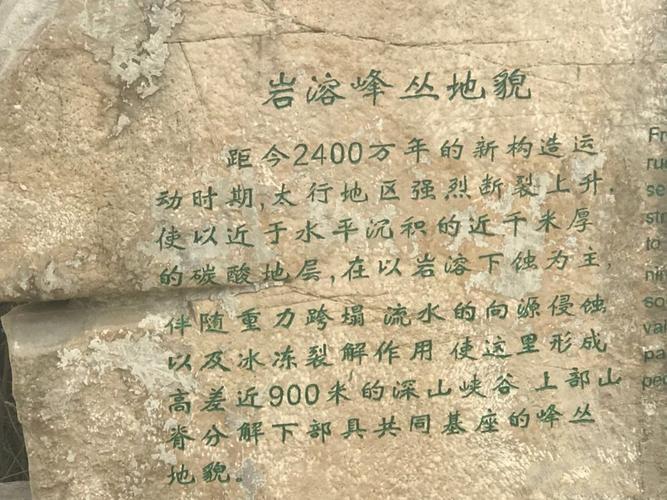 岩溶峰丛地貌
距今2400万年的新构造运
动时期,太行地区强烈断裂上升,
使以近于水平沉积的近千米厚
的碳酸地层,在以岩溶下蚀为主,
伴随重力跨塌 流水的向源侵蚀
以及冰冻裂解作用 使这里形成
高差近900米的深山峡谷 上部山
脊分解下部具共同基座的峰丛
地貌。